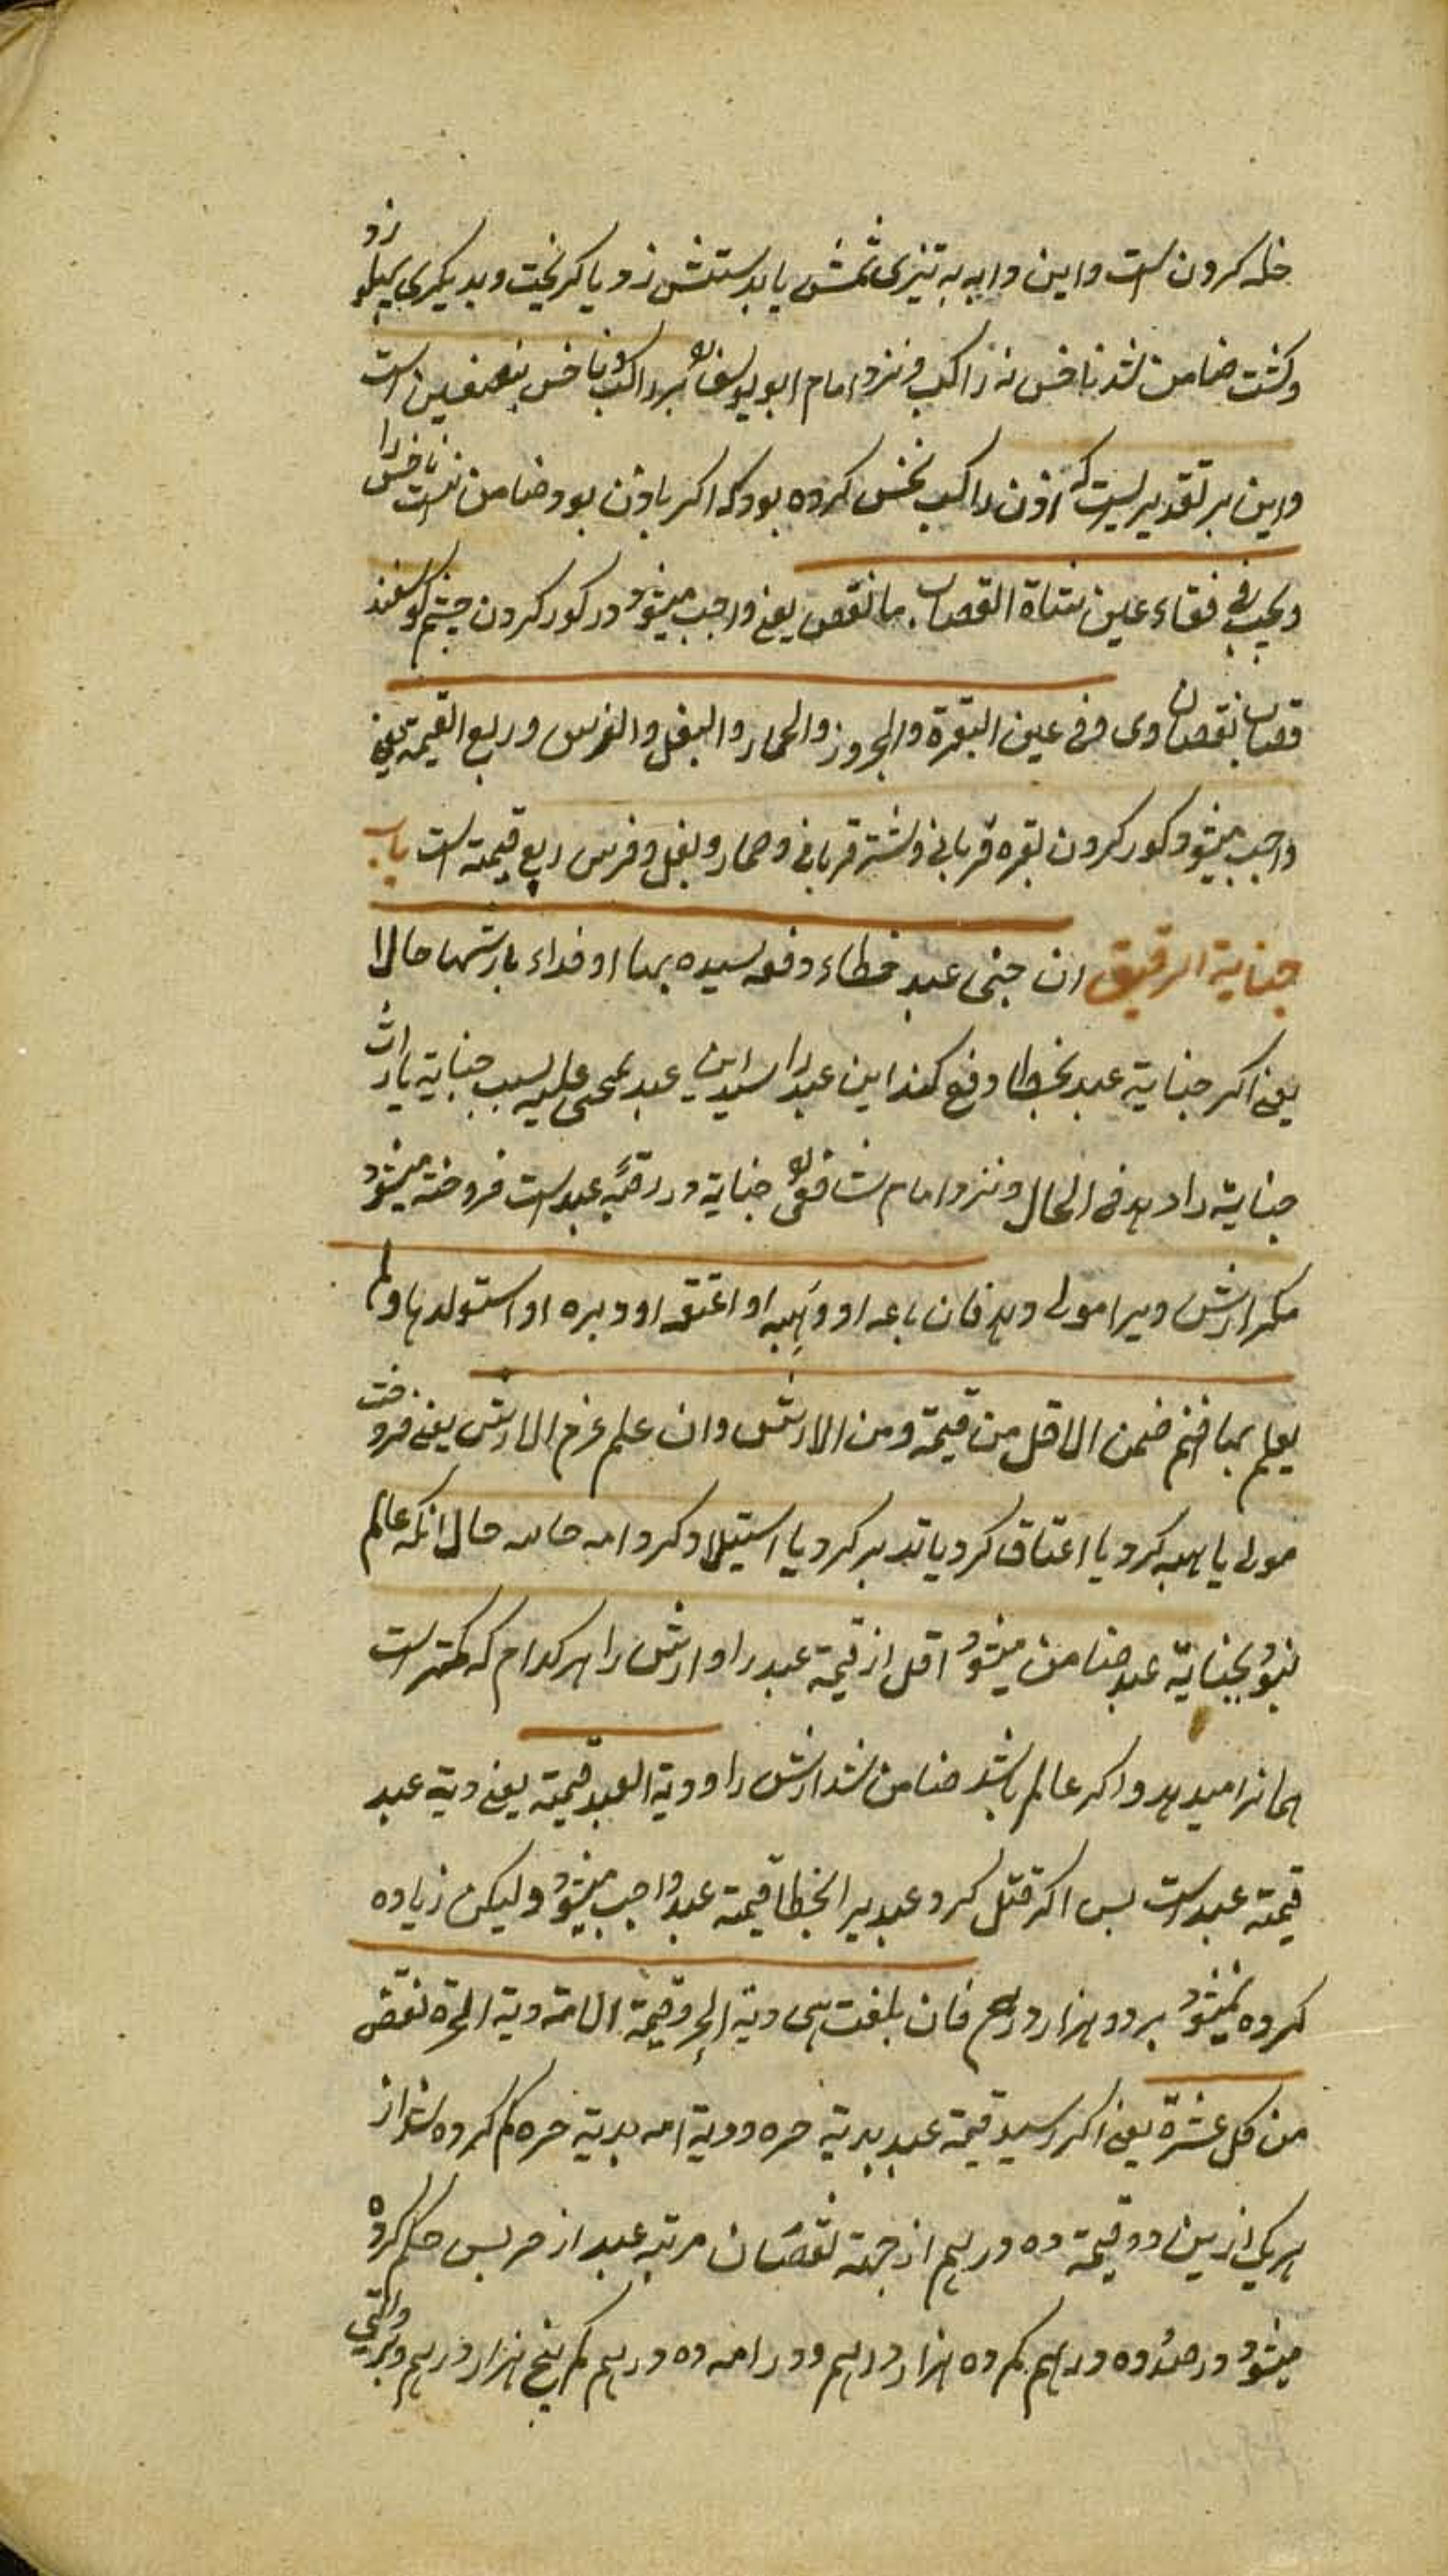 خله کردن است و این دابه به تیزی سمش یا بدستش زد یا گریخت و بدیگری پهلو زد
و کشت ضامن شد ناخس نه راکب و نزد امام ابو یوسف بر راکب و ناخس بنصفین است
و این بر تقدیریست که اذن راکب نخس کرده بود که اگر باذن بود ضامن نیست ناخس را
و یجب فی فقاء عین شاة القصاب ما نقص یعنی واجب میشود در کور کردن چشم گوسفند
قصاب نقصان وی و فی عین البقرة والجزور والحمار والبغل والفرس و ربع القیمة یعنی
واجب میشود کور کردن بقره قربانی و شتر قربانی و حمار و بغل و فرس ربع قیمته است باب
جنایة الرقیق ان جنی عبد خطاء دفعه سیده بها او فداء بارشها حالا
یعنی اگر جنایة عبد بخطا دفع کند این عبد را سید این عبد بمجنی علیه بسبب جنایة یا ارش
جنایة را دهد فی الحال و نزد امام شافعی جنایة در رقبه عبد است فروخته میشود
مگر ارش ویرا مولی دهد فان باعه او وهبه او اعتقه او دبره او استولدها و لم
یعلم بها ضمن الاقل من قیمة و من الارش وان علم غرم الارش یعنی فروخت
مولی یا هبه کرد یا اعتاق کرد یا تدبیر کرد یا استیلاد کرد امه حال آنکه عالم
نبود بجنایة عبد ضامن میشود اقل از قیمة عبد را و ارش را هر کدام که کمتر است
همانرا میدهد و اگر عالم باشد ضامن شد ارش را و دیة العبد قیمته یعنی دیة عبد
قیمته عبد است پس اگر قتل کرد عبد یرا بخطا قیمته عبد واجب میشود و لیکن زیاده
کرده نمیشود بر دو هزار درهم فان بلغت هی دیة الحر و قیمة الامة دیة الحرة نقص
من کل عشرة یعنی اگر رسید قیمة عبد بدیة حره و دیة امه بدیة حره کم کرده شد از
هر یکی ازین دو قیمة ده درهم از جهة نقصان مرتبه عبد از حر پس حکم کرده
میشود در عبد ده درهم کم ده هزار درهم و در امه ده درهم کم پنج هزار درهم